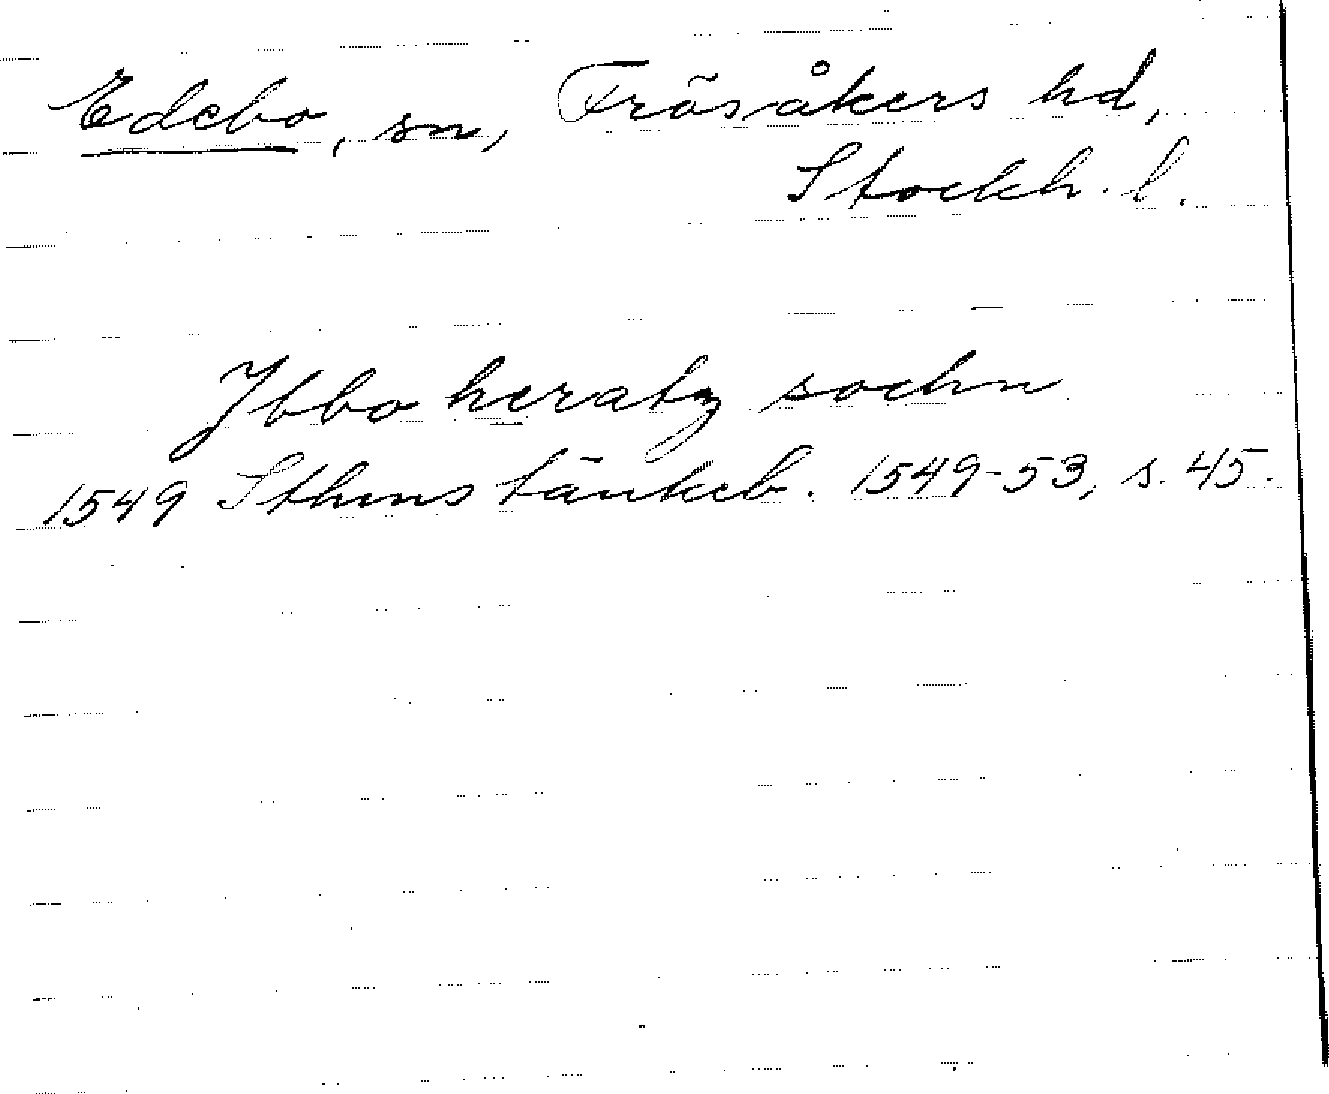 Edebo, sn, Frösåkers hd,
Stockh. l.
Ibbo heratz sochn
1549 Sthms tänkeb. 1549-53, s. 45.